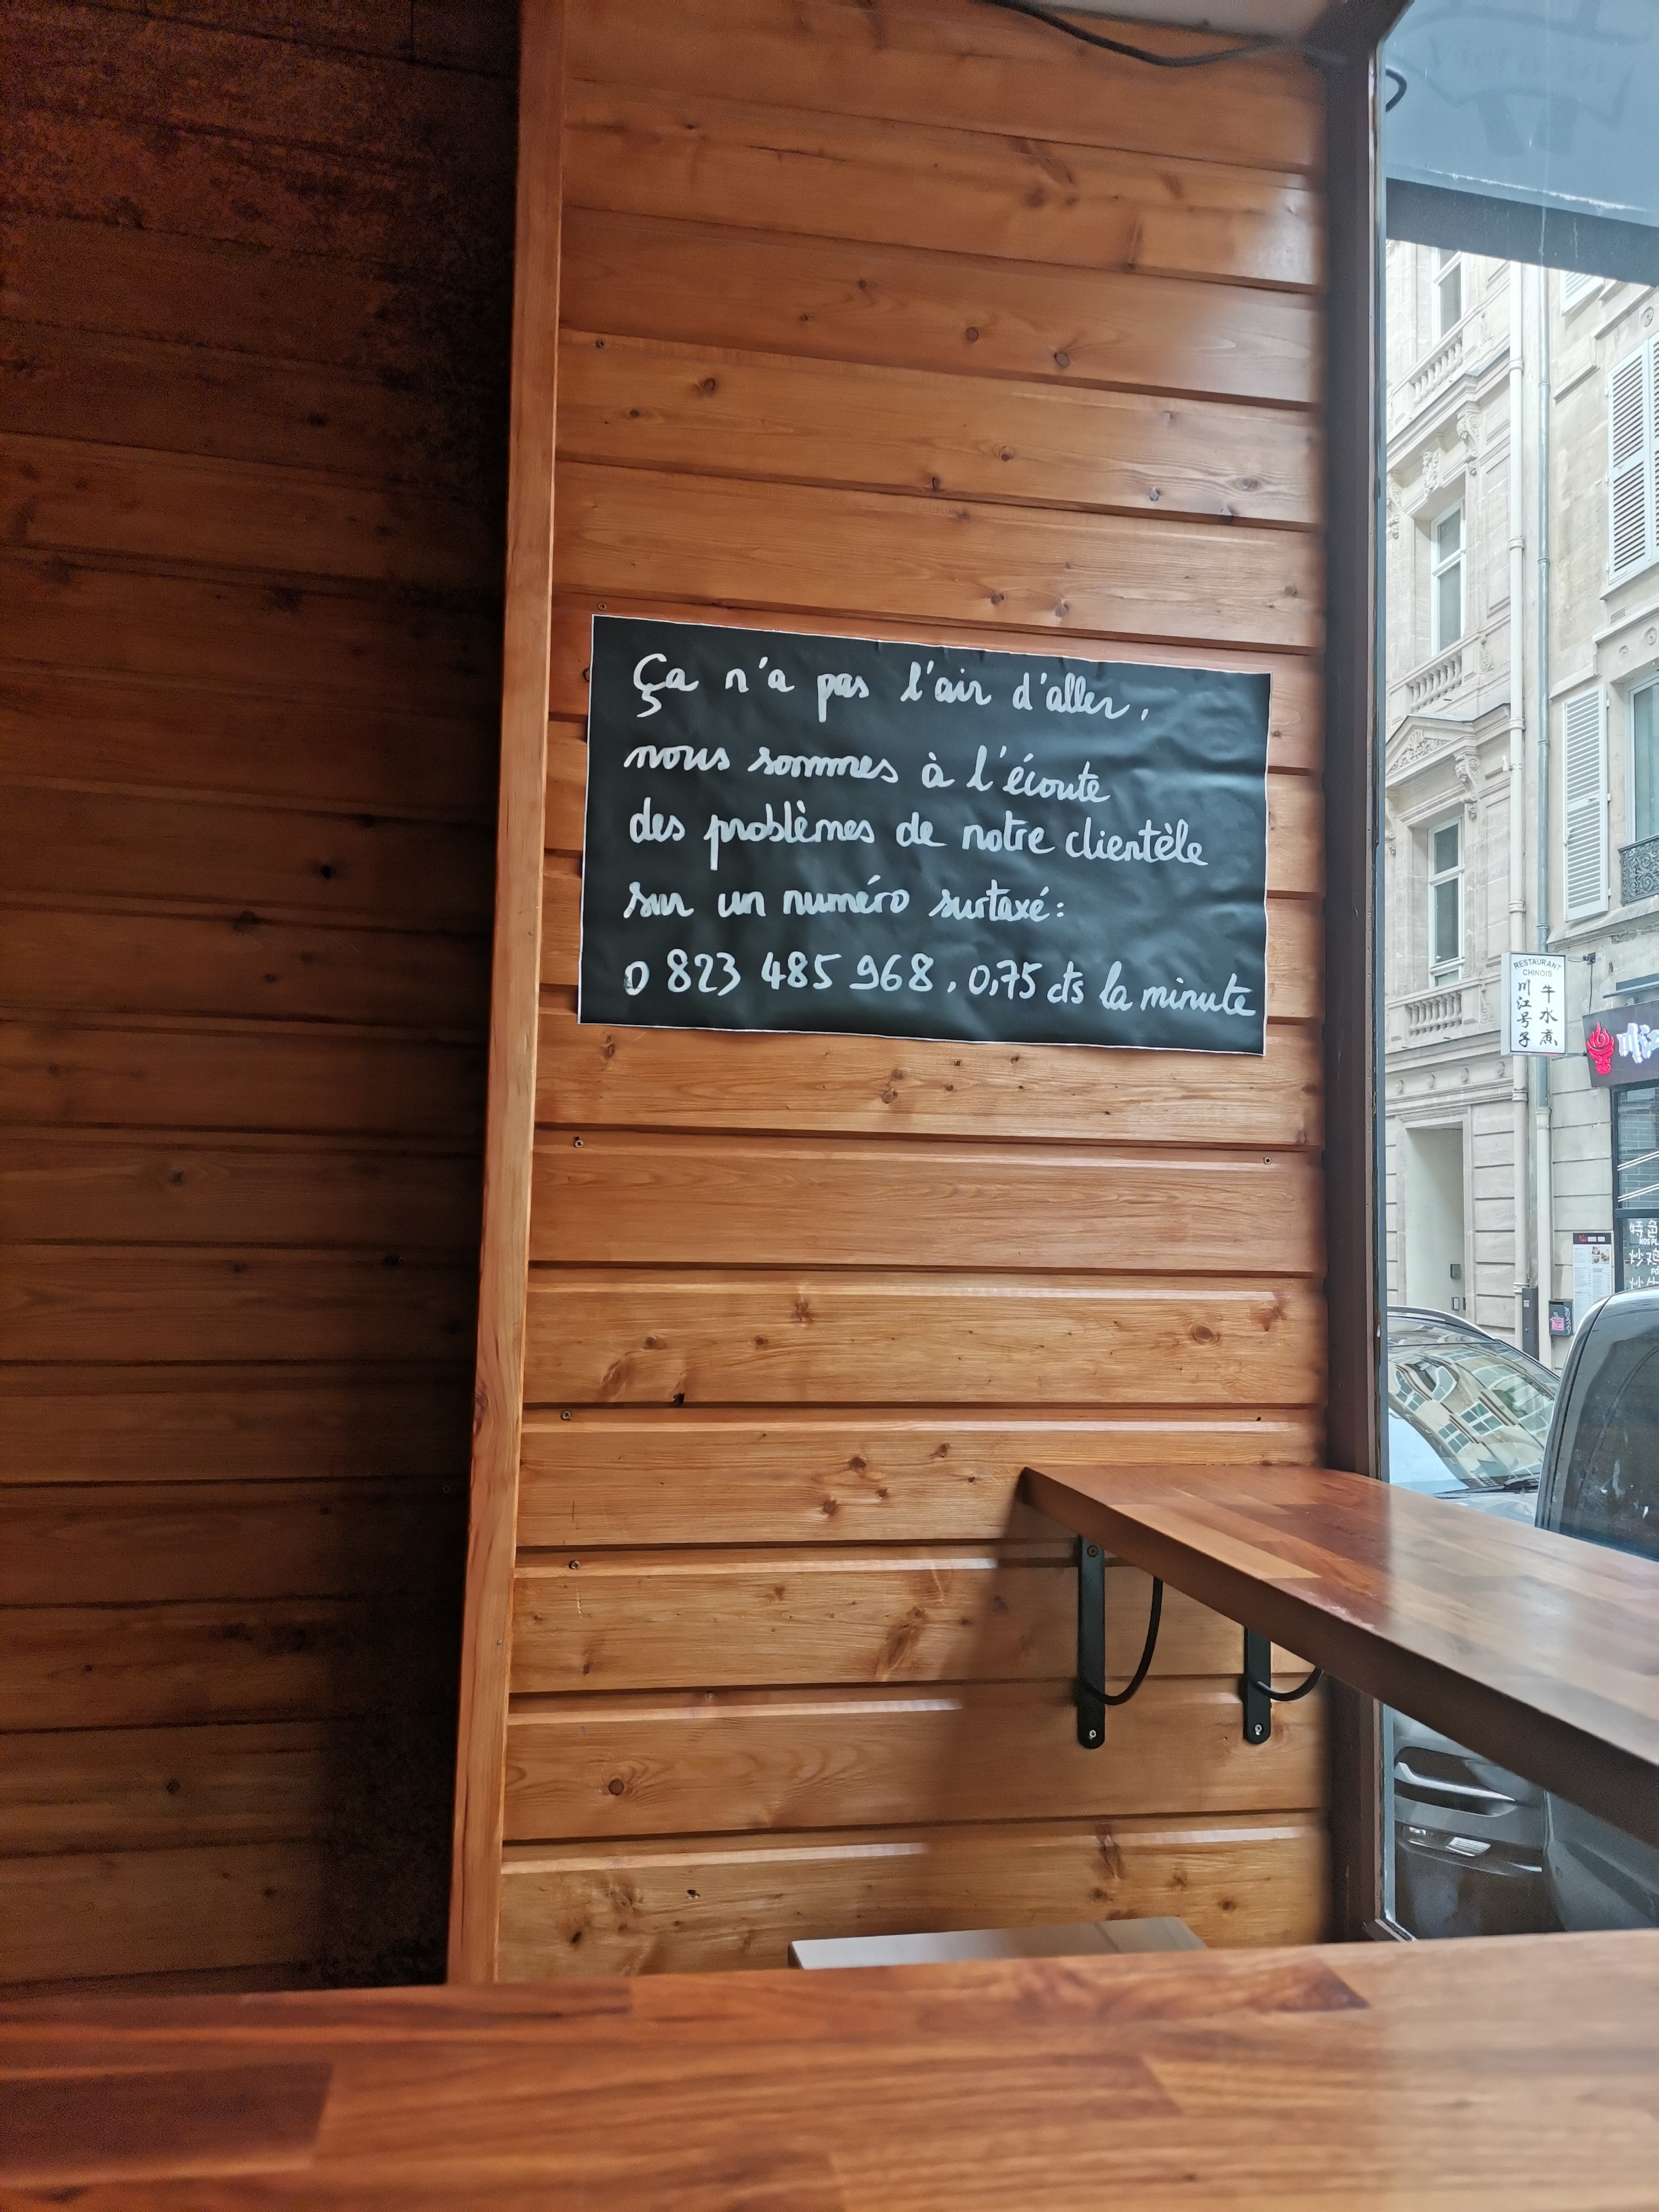 Ça n'a pas l'air d'aller,
nous sommes à l'écoute
des problèmes de notre clientèle
sur un numéro surtaxé:
0 823 485 968, 0,75 cts la minute
RESTAURANT
CHINOIS
川江号子
牛水煮
川江
特色
炒鸡